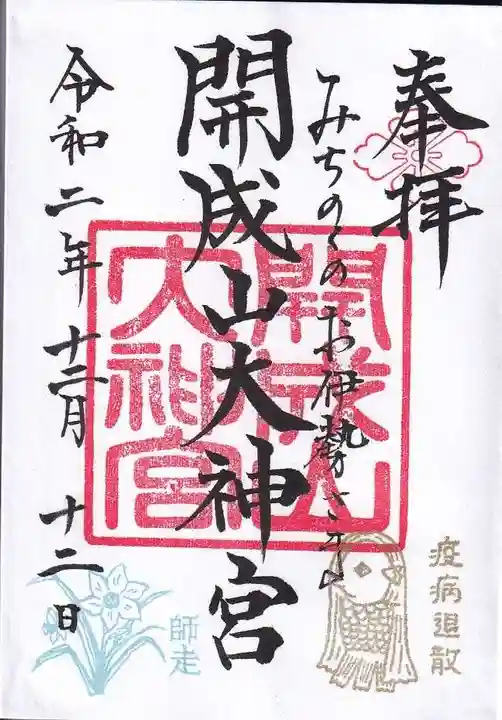 奉拝
みちのくのお伊勢さま
開成山大神宮
令和二年十二月十二日
開成山
大神宮
疫病退散
師走